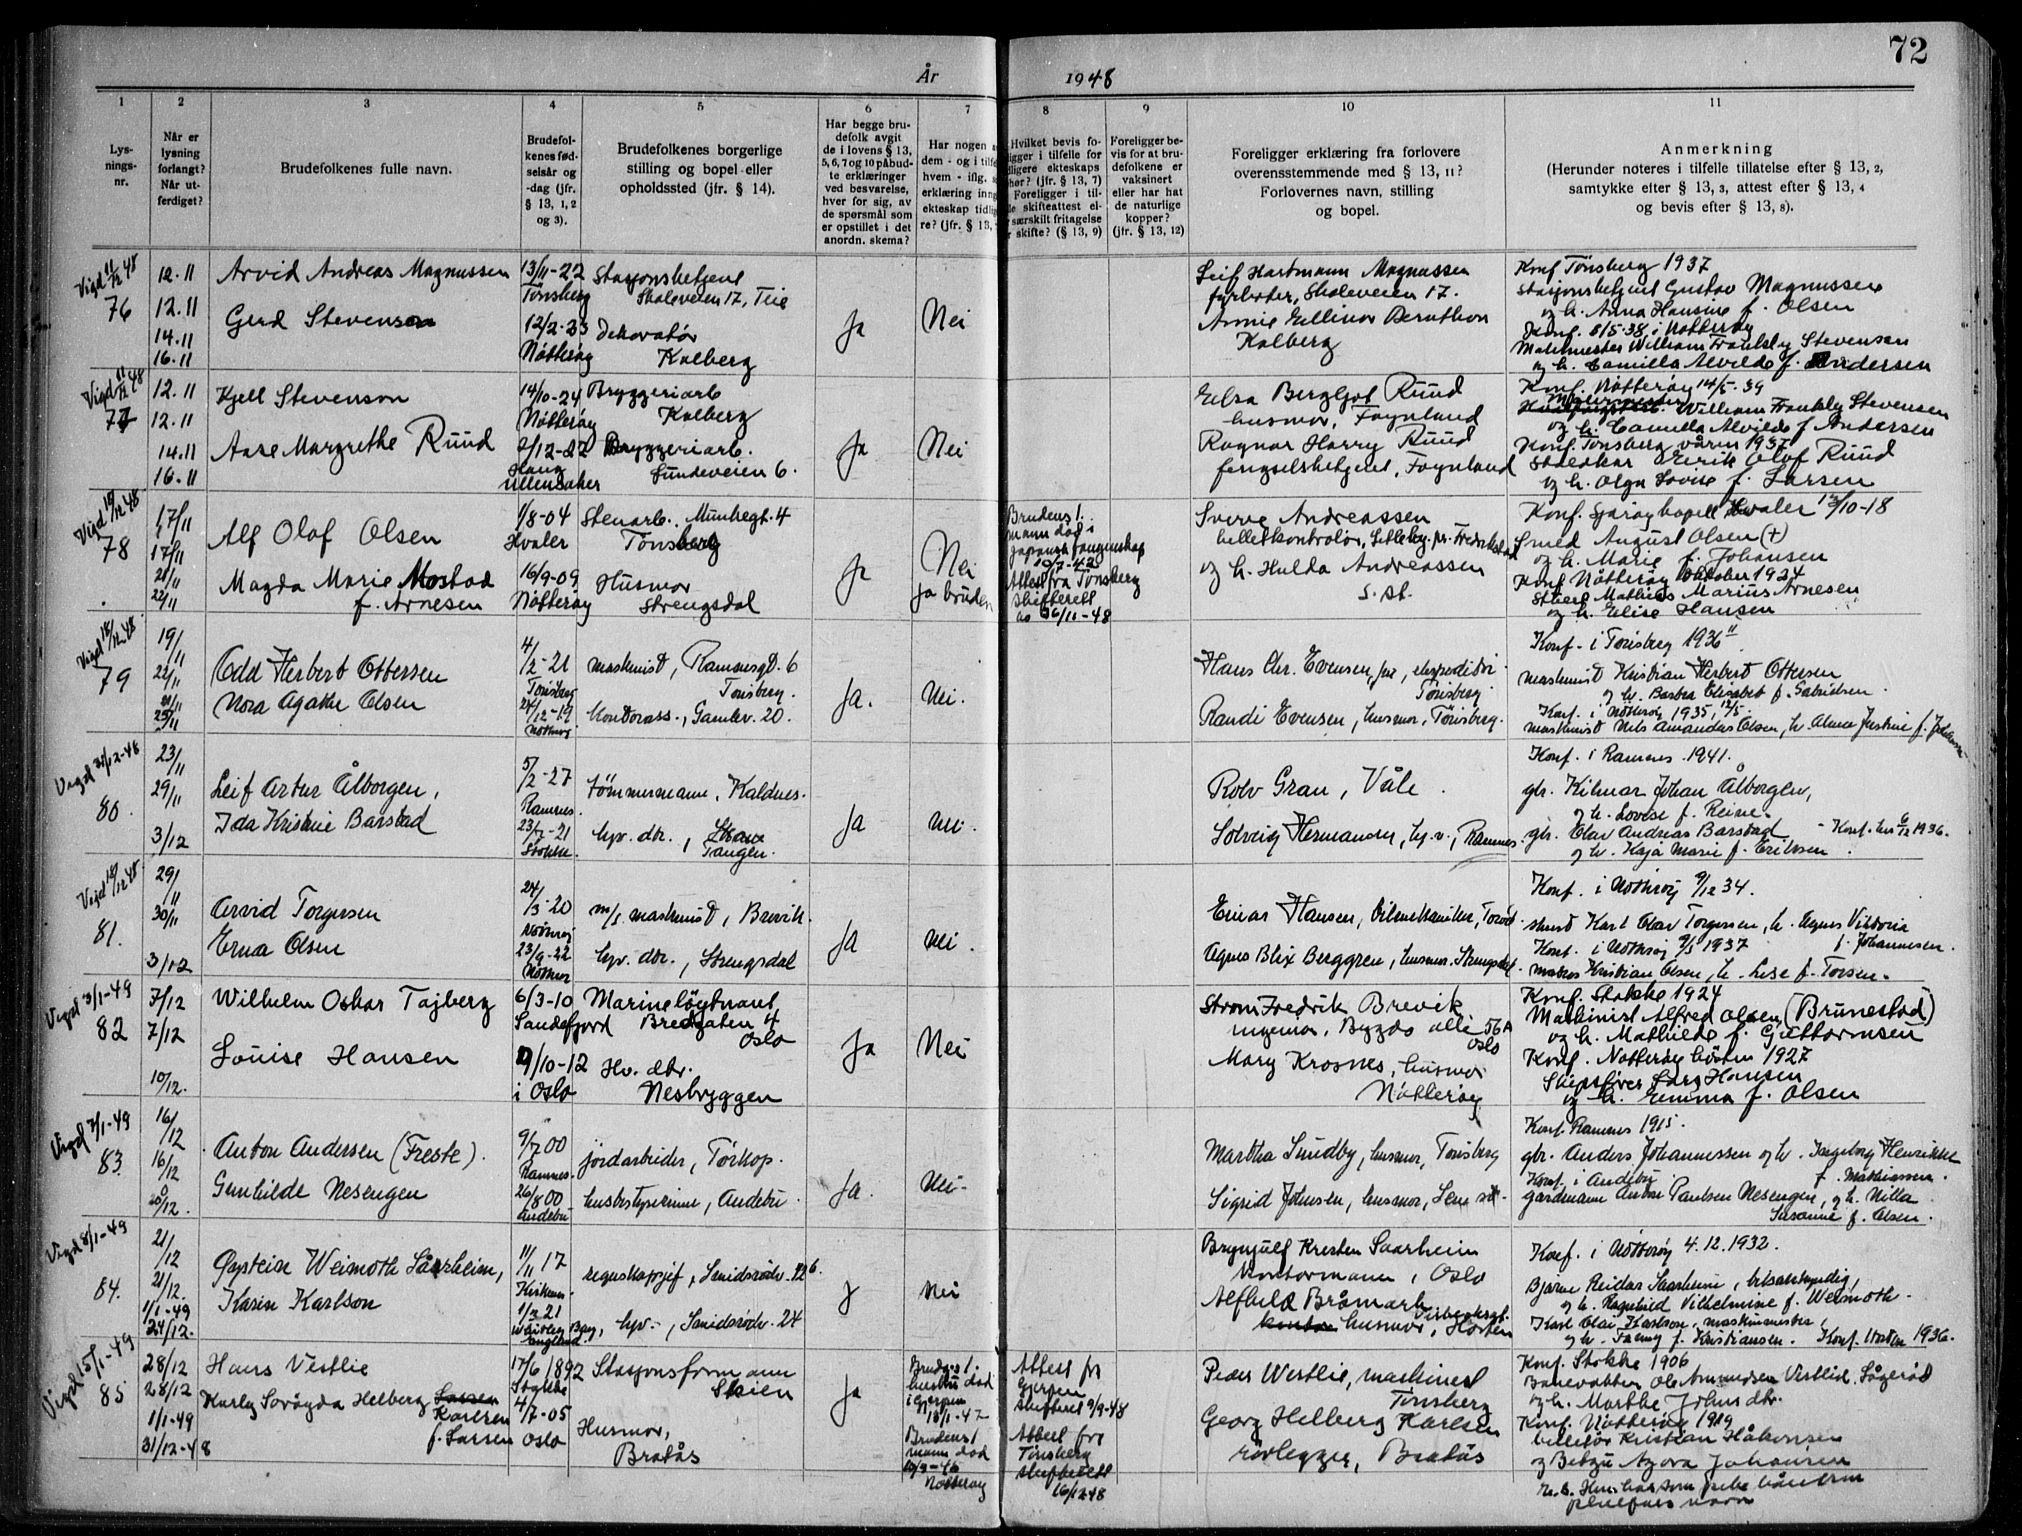 72
År 1948
1
2
3
4
5
6
7
8
9
10
11
Lys-
nings-
nr.
Når er
lysning
forlangt?
Når ut-
ferdiget?
Brudefolkenes fulle navn.
Brudefol-
kenes fød-
selsår og
-dag (jfr.
§ 13, 1, 2
og 3).
Brudefolkenes borgerlige
stilling og bopel eller
opholdssted (jfr. § 14).
Har begge bru-
defolk avgit
de i lovens § 13,
5, 6, 7 og 10 påbud-
te erklæringer
ved besvarelse,
hver for sig, av
de spørsmål som
er opstillet i det
anordn. skema?
Har nogen a
dem - og i tilfe
hvem - iflg. s
erklæring inng
ekteskap tidlig
re? (jfr. § 13,
Hvilket bevis fo-
ligger i tilfelle for
dligere ekteskaps
hør? (jfr. § 13, 7)
Foreligger i til-
le skifteattest el-
r særskilt fritagelse
r skifte? (§ 13, 9)
Foreligger be-
vis for at bru-
defolkene er
vaksinert
eller har hat
de naturlige
kopper?
(jfr. § 13, 12)
Foreligger erklæring fra forlovere
overensstemmende med § 13, 11?
Forlovernes navn, stilling
og bopel.
Anmerkning
(Herunder noteres i tilfelle tillatelse efter § 13, 2,
samtykke efter § 13, 3, attest efter § 13, 4
og bevis efter § 13, 8).
Vigd 11/12 48
76
12.11
12.11
14.11
16.11
Arvid Andreas Magnussen
Gerd Stevenson
13/11-22
Tønsberg
12/2-23
Nøtterøy
Stasjonsbetjent
Skoleveien 17, Teie
Dekoratør
Kalberg
Ja
Nei
Leif Hartmann Magnussen
fyrbøter, Skoleveien 17.
Annie Ellinor Bernthon
Kolberg
Konf Tønsberg 1937
Stasjonsbetjent Gustav Magnussen
og h. Anna Hansine f. Olsen
Konf. 8/5-38 i Nøtterøy
Malermester William Frankley Stevensen
og h. Camilla Alvilde f. Andersen
Vigd 11/12 48
77
12.11
12.11
14.11
16.11
Kjell Stevenson
Aase Margrethe Ruud
14/10-24
Nøtterøy
2/12-22
Haug
Ullensaker
Bryggeriarb
Kalberg
Bryggeriarb.
Sundeveien 6.
Ja
Nei
Elsa Bergljot Ruud
husmor, Føynland
Ragnar Harry Ruud
fengselsbetjent, Føynland
Konf. Nøtterøy 14/5-39
Malermester William Frankley Stevensen
og h. Camilla Alvilde f Andersen
Konf. Tønsberg våren 1937
Eirik Olaf Ruud
og h. Olga Lovise f. Larsen
Vigd 18/12 48
78
17/11
17/11
21/11
22/11
Alf Olaf Olsen
Magda Marie Mostad
f. Arnesen
1/8-04
Hvaler
16/9-09
Nøtterøy
Stenarb. Munkegt. 4
Tønsberg
Husmor
Strengsdal
Ja
Nei
Ja bruden
Brudens 1.
mann død i
japansk fangenskap
10/7-42
Attest fra Tønsberg
skifterett
av 26/11-48
Sverre Andreassen
billettkontrolør, Selleby. pr. Fredrikstad
og h. Hulda Andreassen
s. st.
Konf. Spjærøy kapell Hvaler 13/10-18
Smed August Olsen (+)
og h. Marie f. Johansen
Konf Nøtterøy Oktober 1924
Stuert Mathias Marius Arnesen
og h. Elise Hansen
Vigd 18/12 48
79
19/11
22/11
21/11
25/11
Odd Herbert Ottersen
Nora Agathe Olsen
4/2-21
Tønsberg
24/12-19
Nøtterøy
maskinist, Ramnesgt. 6
Tønsberg.
Kontorass., Gamlev. 20.
Ja.
Nei.
Hans Chr. Evensen, jnr, ekspeditør
Tønsberg
Randi Evensen, husmor, Tønsberg.
Konf. i Tønsberg 1936
maskinist Kristian Herbert Ottersen
og h. Barbra Elisabet f. Gabrielsen.
Konf. i Nøtterøy 1935, 12/5.
maskinist Nils Amandus Olsen, h. Alma Justine f. Johansen
Vigd 31/12-48
80.
23/11
29/11
3/12
Leif Artur Ålborgen,
Ida Kristine Barstad
5/2-27
Ramnes.
23/7-21
Stokke.
tømmermann, Kaldnes.
hpv. dtr.,
Tangen.
Ja
Nei.
Rolv Gran, Våle.
Solveig Hermansen, hp.v., Ramnes.
Konf. i Ramnes. 1941.
gbr. Hilmar Johan Ålborgen,
og h. Lovise f. Reine.
gbr. Olav Andreas Barstad - Konf. hus 6/12 1936.
og h. Kaja Marie f. Eriksen.
Vigd 18/12 48
81.
29/11
30/11
3/12
Arvid Torgersen
Erna Olsen
24/3-20
Nøtterøy
23/9-22
Nøtterøy
m/s maskinist, Brevik.
hpv. dtr., Strengsdal
Ja
Nei.
Einar Hansen, bilmekaniker, Torød.
Agnes Blix Berggren, husmor. Strengsdal.
Konf. i Nøtterøy 9/12 34.
Karl Olav Torgersen, h. Agnes Viktoria
f. Johannesen.
Konf. i Nøtterøy 9/5 1937
matros Kristian Olsen, h. Lise f. Torsen.
Vigd 3/1-49
82
7/12
7/12
10/12.
Wilhelm Oskar Tajberg
Louise Hansen
6/3-10
Sandefjord
9/10-12
i Oslo
Marineløytnant
Bredgaten 4
Oslo
Hv. dtr.
Nesbryggen
Ja
Nei
Strøm Fredrik Brevik
ingeniør, Bygdø alle 56A
Oslo
Mary Krosnes, husmor
Nøtterøy
Konf. Stokke 1924
Maskinist Alfred Olsen (Brunestad)
og h. Mathilde f. Guttormsen
Konf. Nøtterøy høsten 1927
Skipsfører Lars Hansen
og h. Emma f. Olsen
Vigd 7/1-49
83.
16/12
16/12
20/12.
Anton Andersen (Freste).
Gunhilde Nesengen
9/7 00
Ramnes.
26/8 00
Andebu
jordarbeider, Torkop.
husbestyrerinne, Andebu.
Ja.
Nei.
Martha Sundby, husmor, Tønsberg
Sigrid Johnsen, husmor, Sem st.
Konf. Ramnes 1915.
gbr. Anders Johannessen og h. Ingeborg Henrikke
f. Mathiassen.
Konf. i Andebu
gårdmann Anton Paulsen Nesengen, og h. Nilla
Susanne f. Olsen.
Vigd 8/1-49
84.
21/12
21/12.
1/1-49
24/12.
Øystein Weimoth Saarheim,
Karin Karlson
11/11 17
Kirkenes.
1/3 21
Whitley Bay,
England.
regnskapssjef, Smidsrødv. 126.
hpv.-, Smidsrødv. 24
J
Nei
Brynjulf Kresten Saarheim
Kontormann, Oslo
Alfhild Bråmark
husmor, Horten
Konf. i Nøtterøy 4.12.1932.
Bjarne Reidar Saarheim,
og h. Ragnhild Vilhelmine f. Weimoth.
Karl Olai Karlson, maskinmester,
og h. Fanny f. Kristiansen. Konf. Horten 1936.
Vigd 15/1-49
85
28/12
28/12
1/1-49
31/12-48
Hans Vestlie
Karly Sorøyda Helberg Larsen
Karlsen
f. Larsen
17/6 1892
Stokke
4/7-05
Oslo
Stasjonsformann
Skien
Husmor,
Bratås
Ja
Brudg.s 1.
hustru død
i Gjerpen
13/1-47
Brudens 1
mann død
Nøtterøy
Attest fr
Gjerpen
skifterett 9/9-48
Attest fra
Tønsberg
skifterett
16/12 48
Peder Westlie, maskinist
Tønsberg
Georg Helberg Karlsen
rørlegger, Bratås
Konf. Stokke 1906
Banevokter Ole Amundsen Vestlid, Sågerød
og h. Marthe Johns dtr.
Konf. Nøtterøy 1919
Kristian Håkonsen
og Betzy Azora Johansen